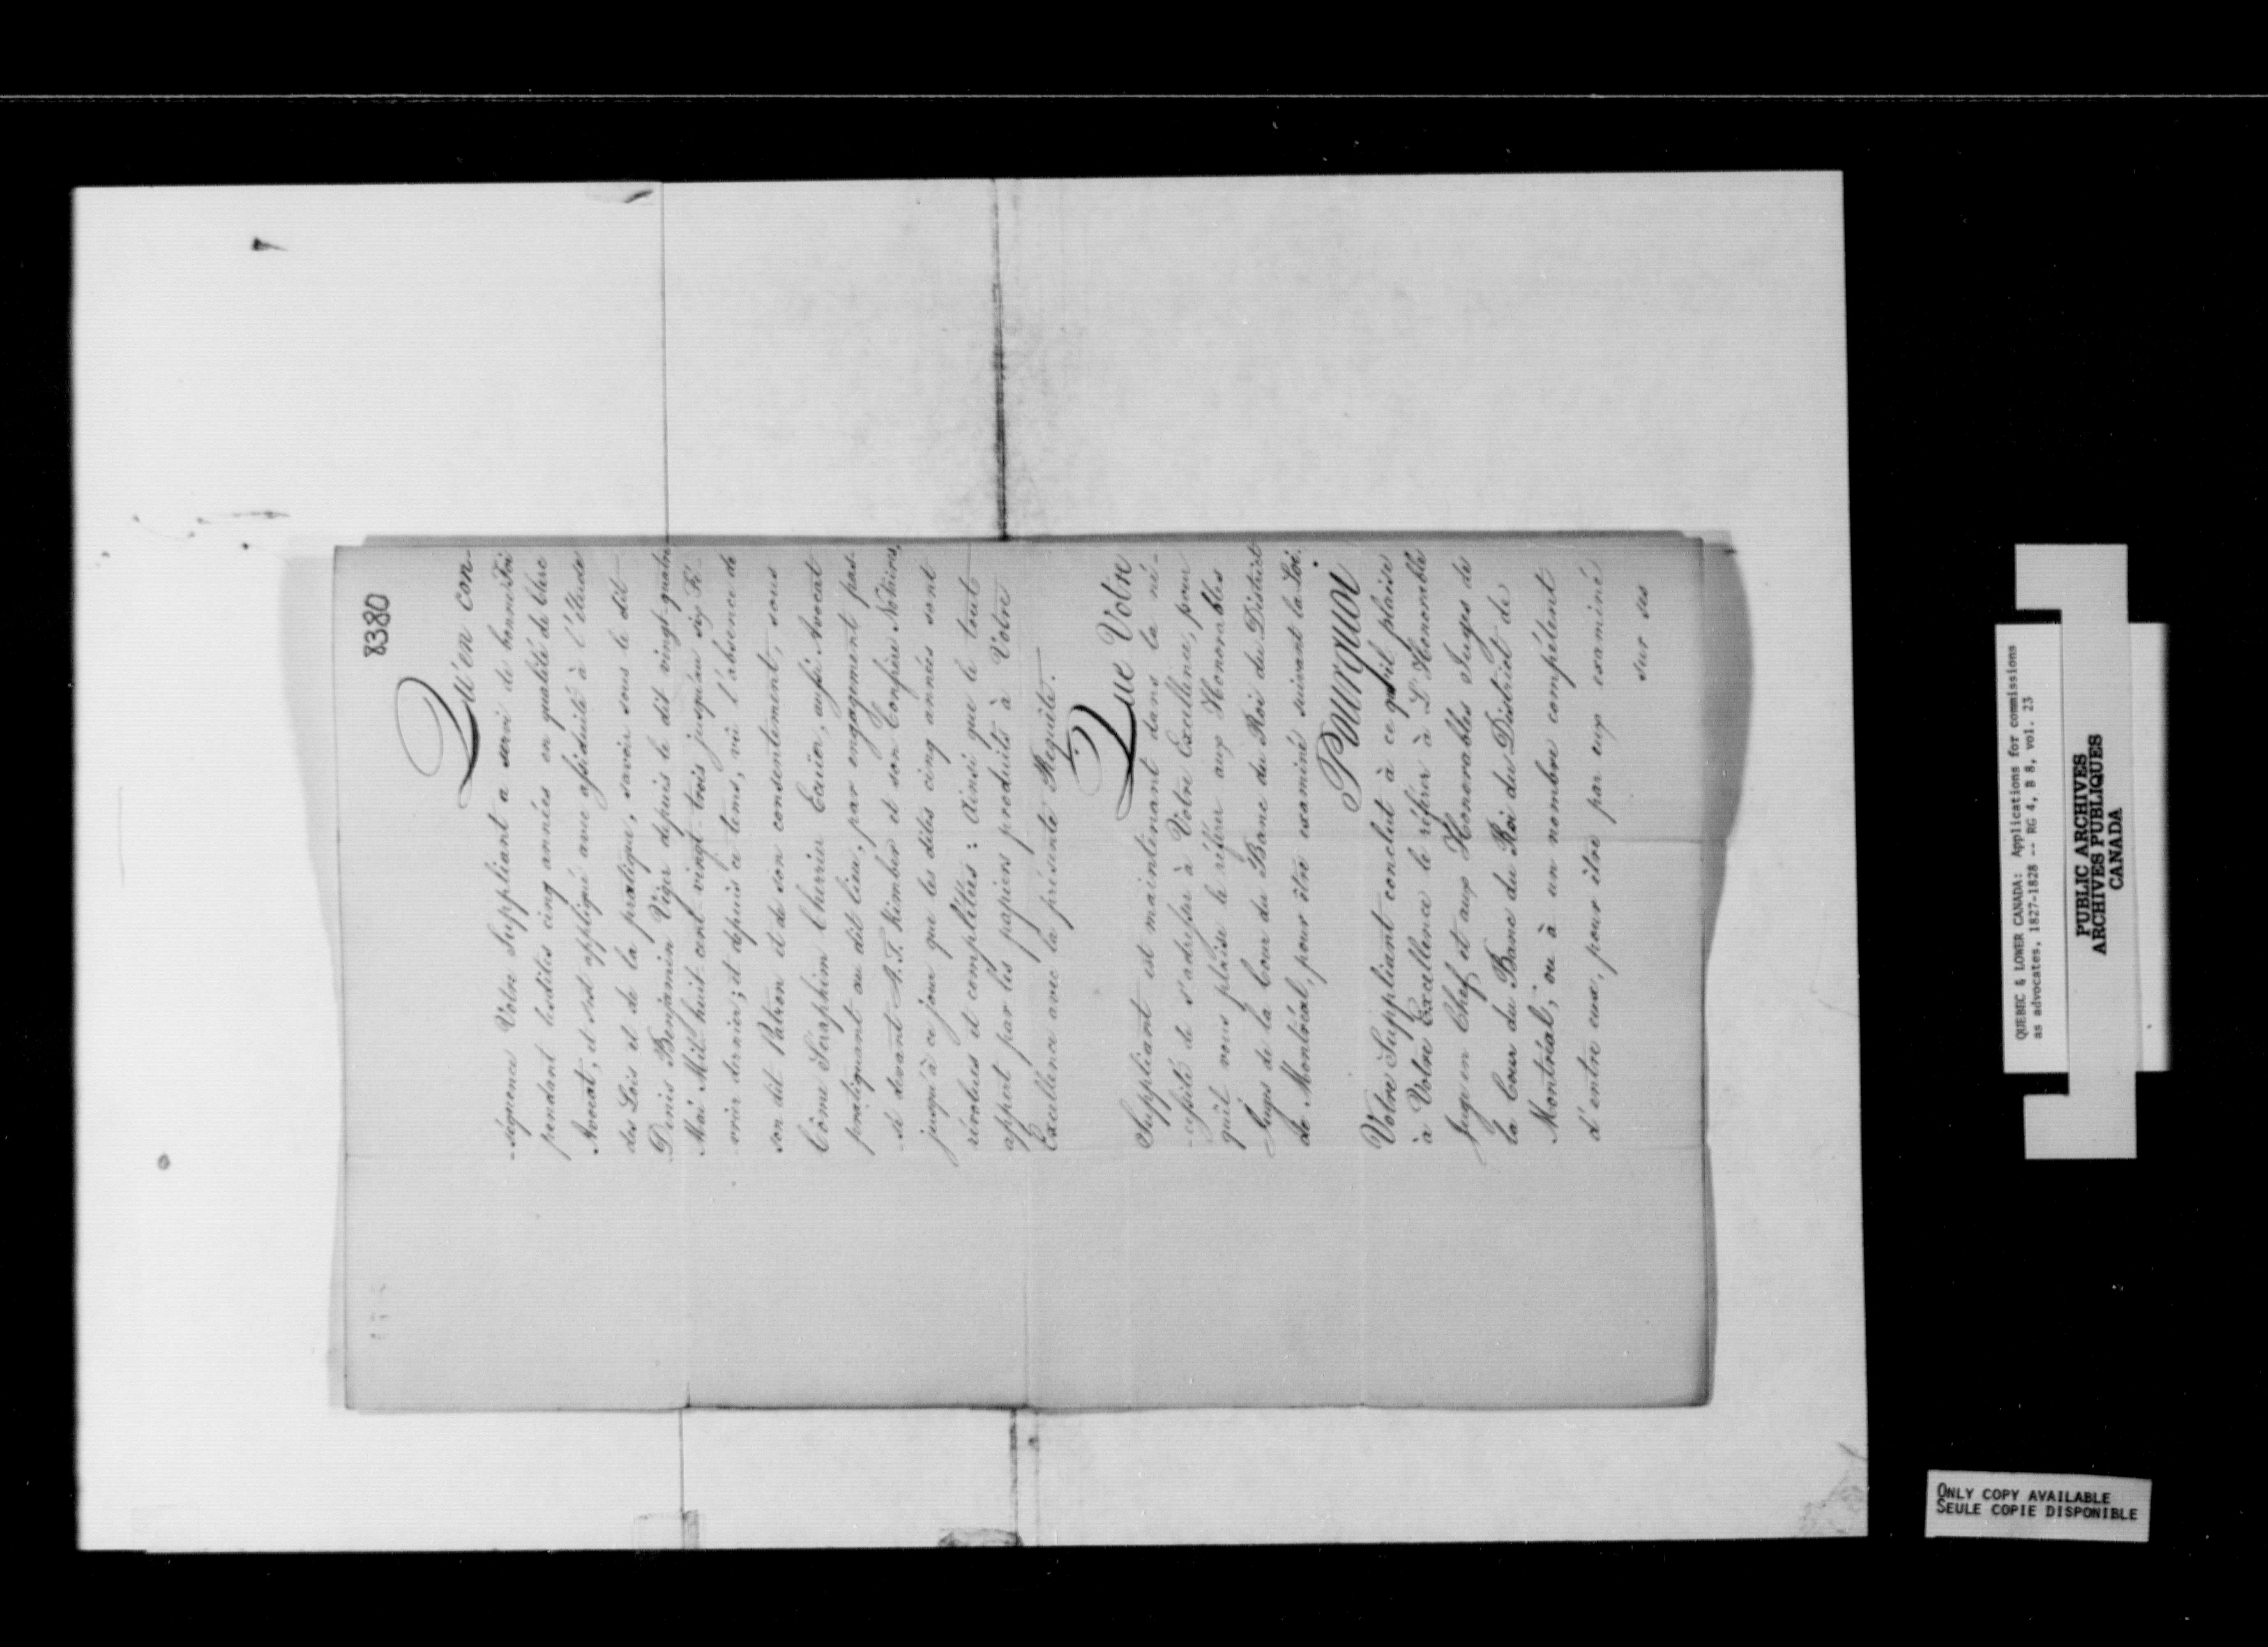 8380
Qu'en con-
-séquence Votre Suppliant a servi de bonne Foi
pendant lesdites cinq années en qualité de Clerc
Avocat, et s'est appliqué avec assiduité à l'étude
des Lois et de la pratique, savoir sous le dit
Denis Benjamin Viger depuis le dit vingt-quatre
Mai Mil-huit-cent-vingt-trois jusqu'au six Fé-
vrier dernier; et depuis ce tems, vû l'absence de
son dit Patron et de son consentement, sous
Côme Seraphim Cherrier Ecuïer, aussi Avocat
pratiquant au dit lieu, par engagement pas-
-sé devant A. T. Kimber et son Confrère Notaires,
jusqu'à ce jour que les dites cinq années sont
révolues et complêttes: Ainsi que le tout
appert par les papiers produits à Votre
Excellence avec la présente Requête.
Que Votre
Suppliant est maintenant dans la né-
-cessité de s'adresser à Votre Excellence, pour
qu'il vous plaise le référer aux Honorables
Juges de la Cour du Banc du Roi du District
de Montréal, pour être examiné suivant la Loi.
Pourquoi
Votre Suppliant conclut à ce qu'il plaise
à Votre Excellence le référer à L'Honorable
Juge en Chef et aux Honorables Juges de
la Cour du Banc du Roi du District de
Montréal, ou à un nombre compétent
d'entre eux, pour être par eux examiné
sur ses
QUEBEC & LOWER CANADA: Applications for commissions
as advocates, 1827-1828 -- RG 4, B 8, vol. 23
PUBLIC ARCHIVES
ARCHIVES PUBLIQUES
CANADA
ONLY COPY AVAILABLE
SEULE COPIE DISPONIBLE